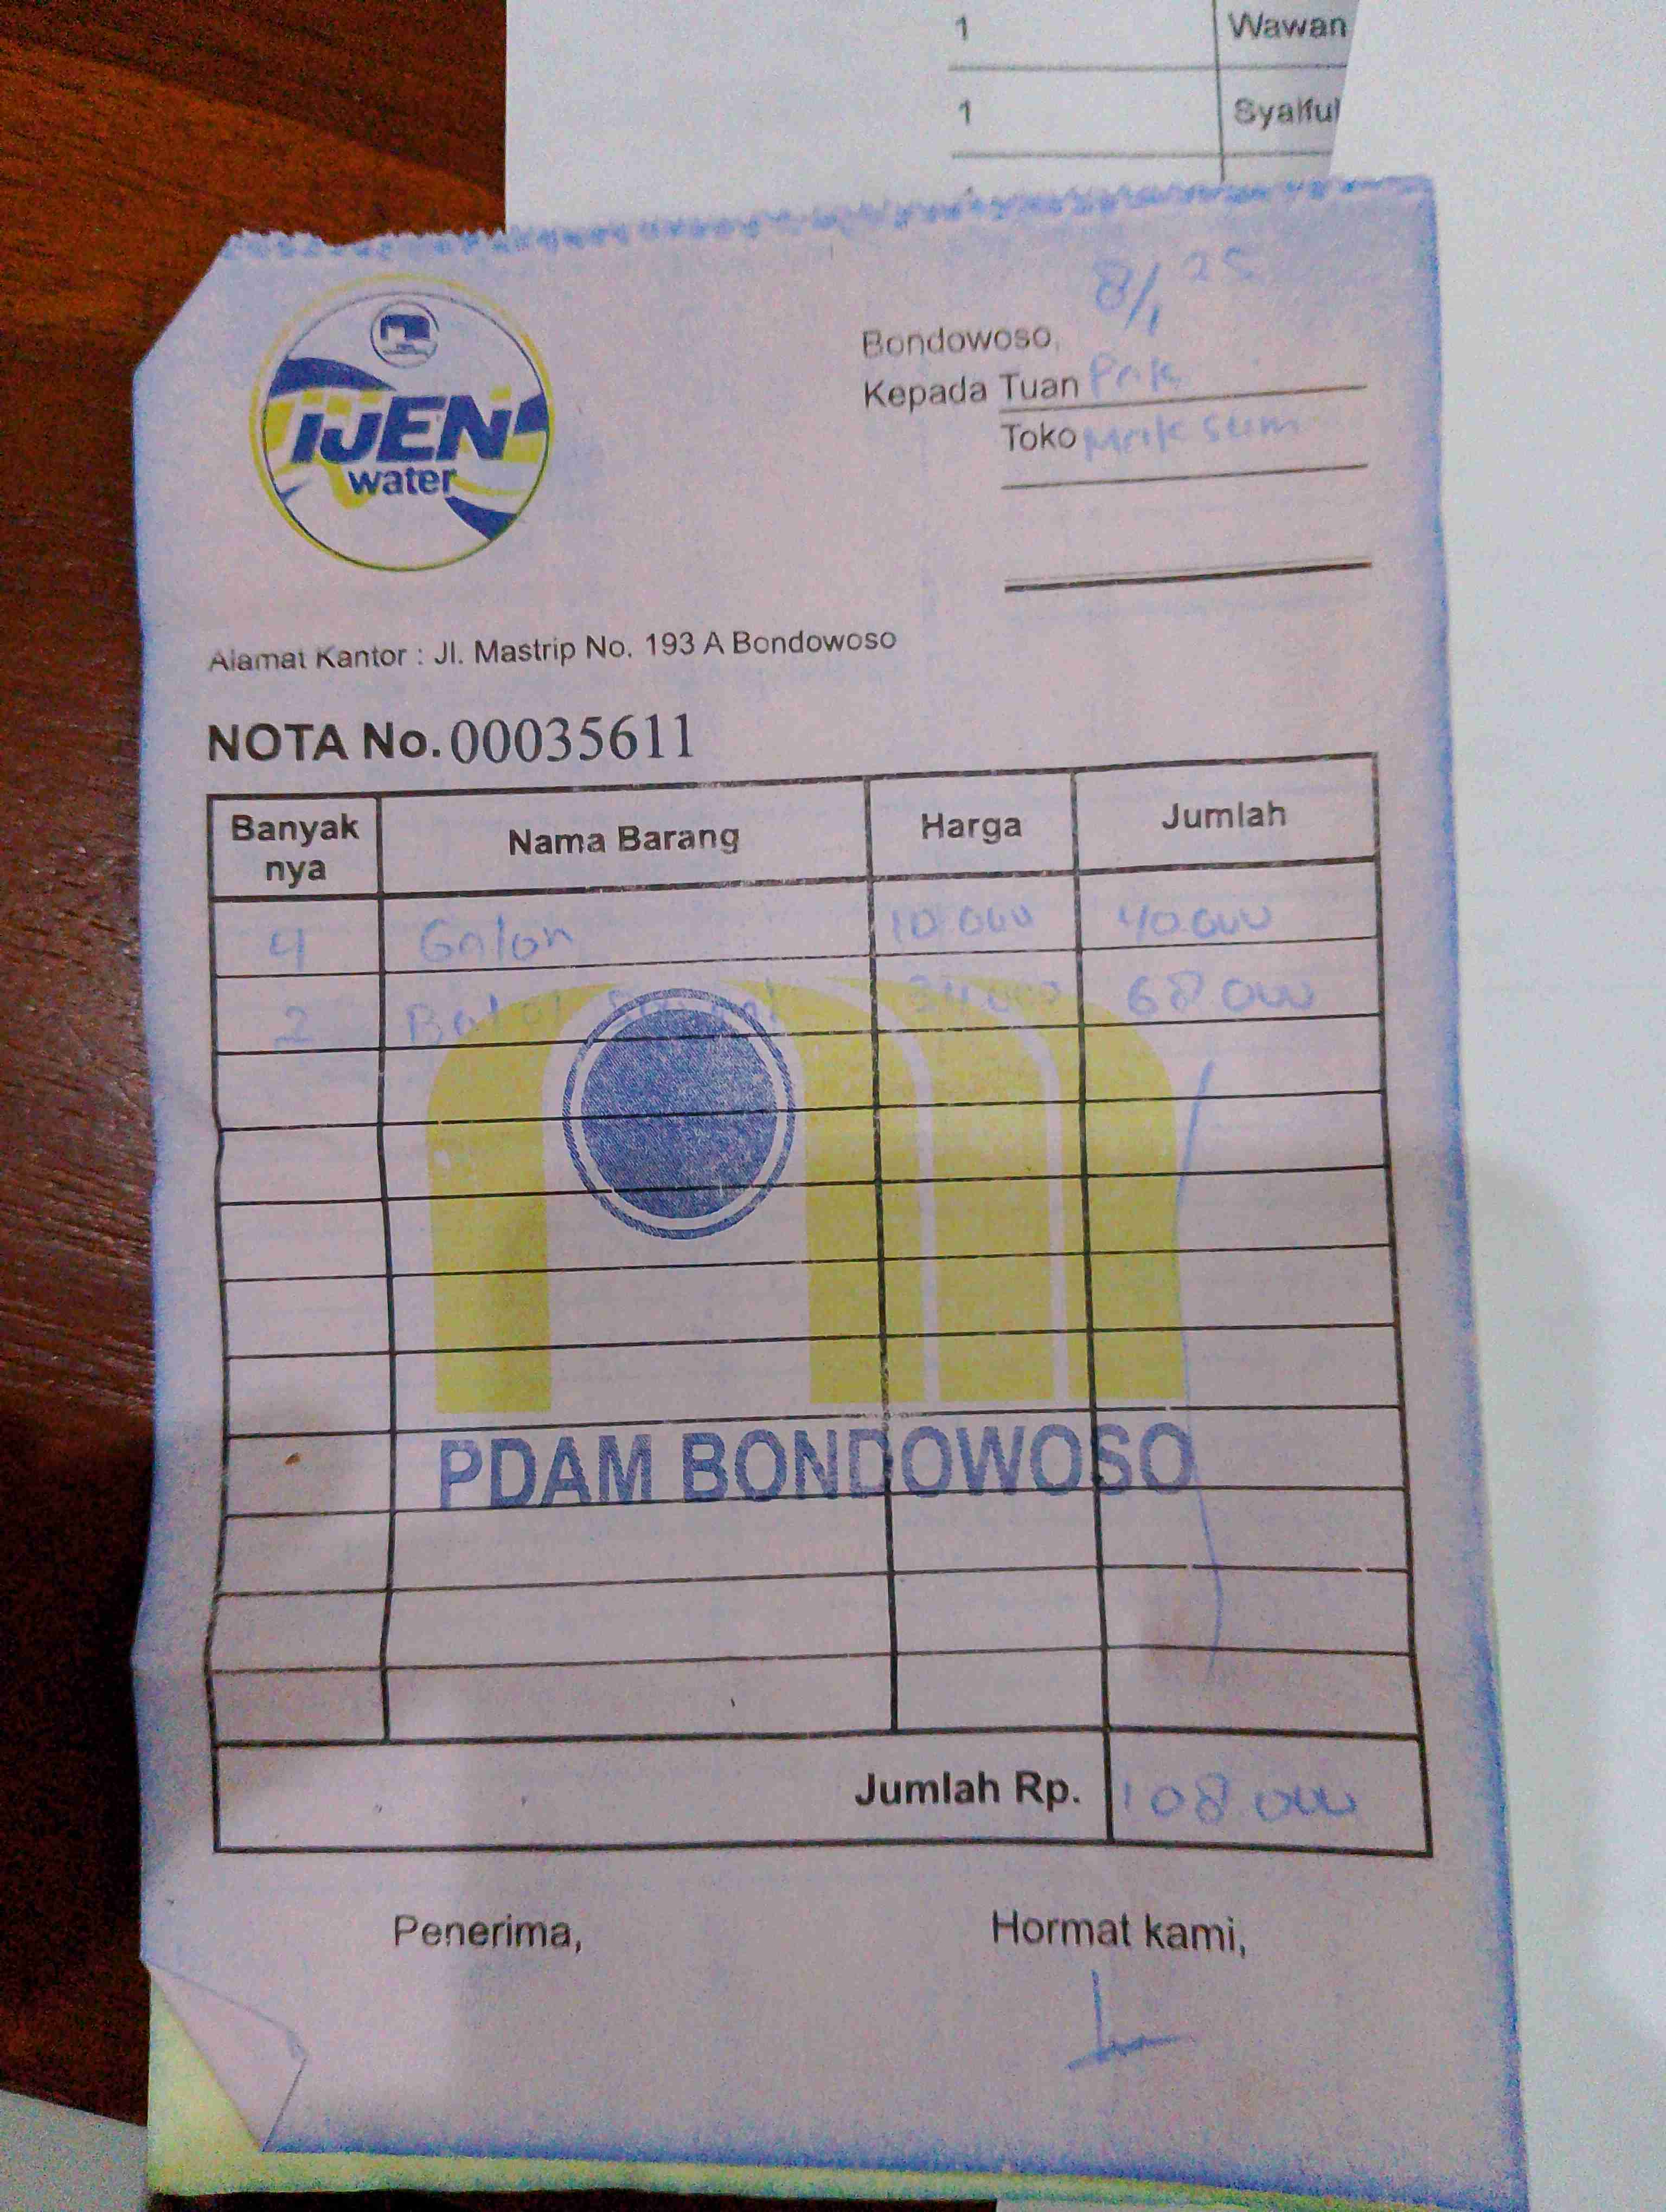 1 Wawan
1 Syaiful
IJEN
water
8/1 25
Bondowoso,
Kepada Tuan Pak
Toko
Alamat Kantor : Jl. Mastrip No. 193 A Bondowoso
NOTA No. 00035611
Banyak nya Nama Barang Harga Jumlah
4 Galon 10.000 40.000
2 Botol 34.000 68.000
PDAM BONDOWOSO
Jumlah Rp. 108.000
Penerima, Hormat kami,